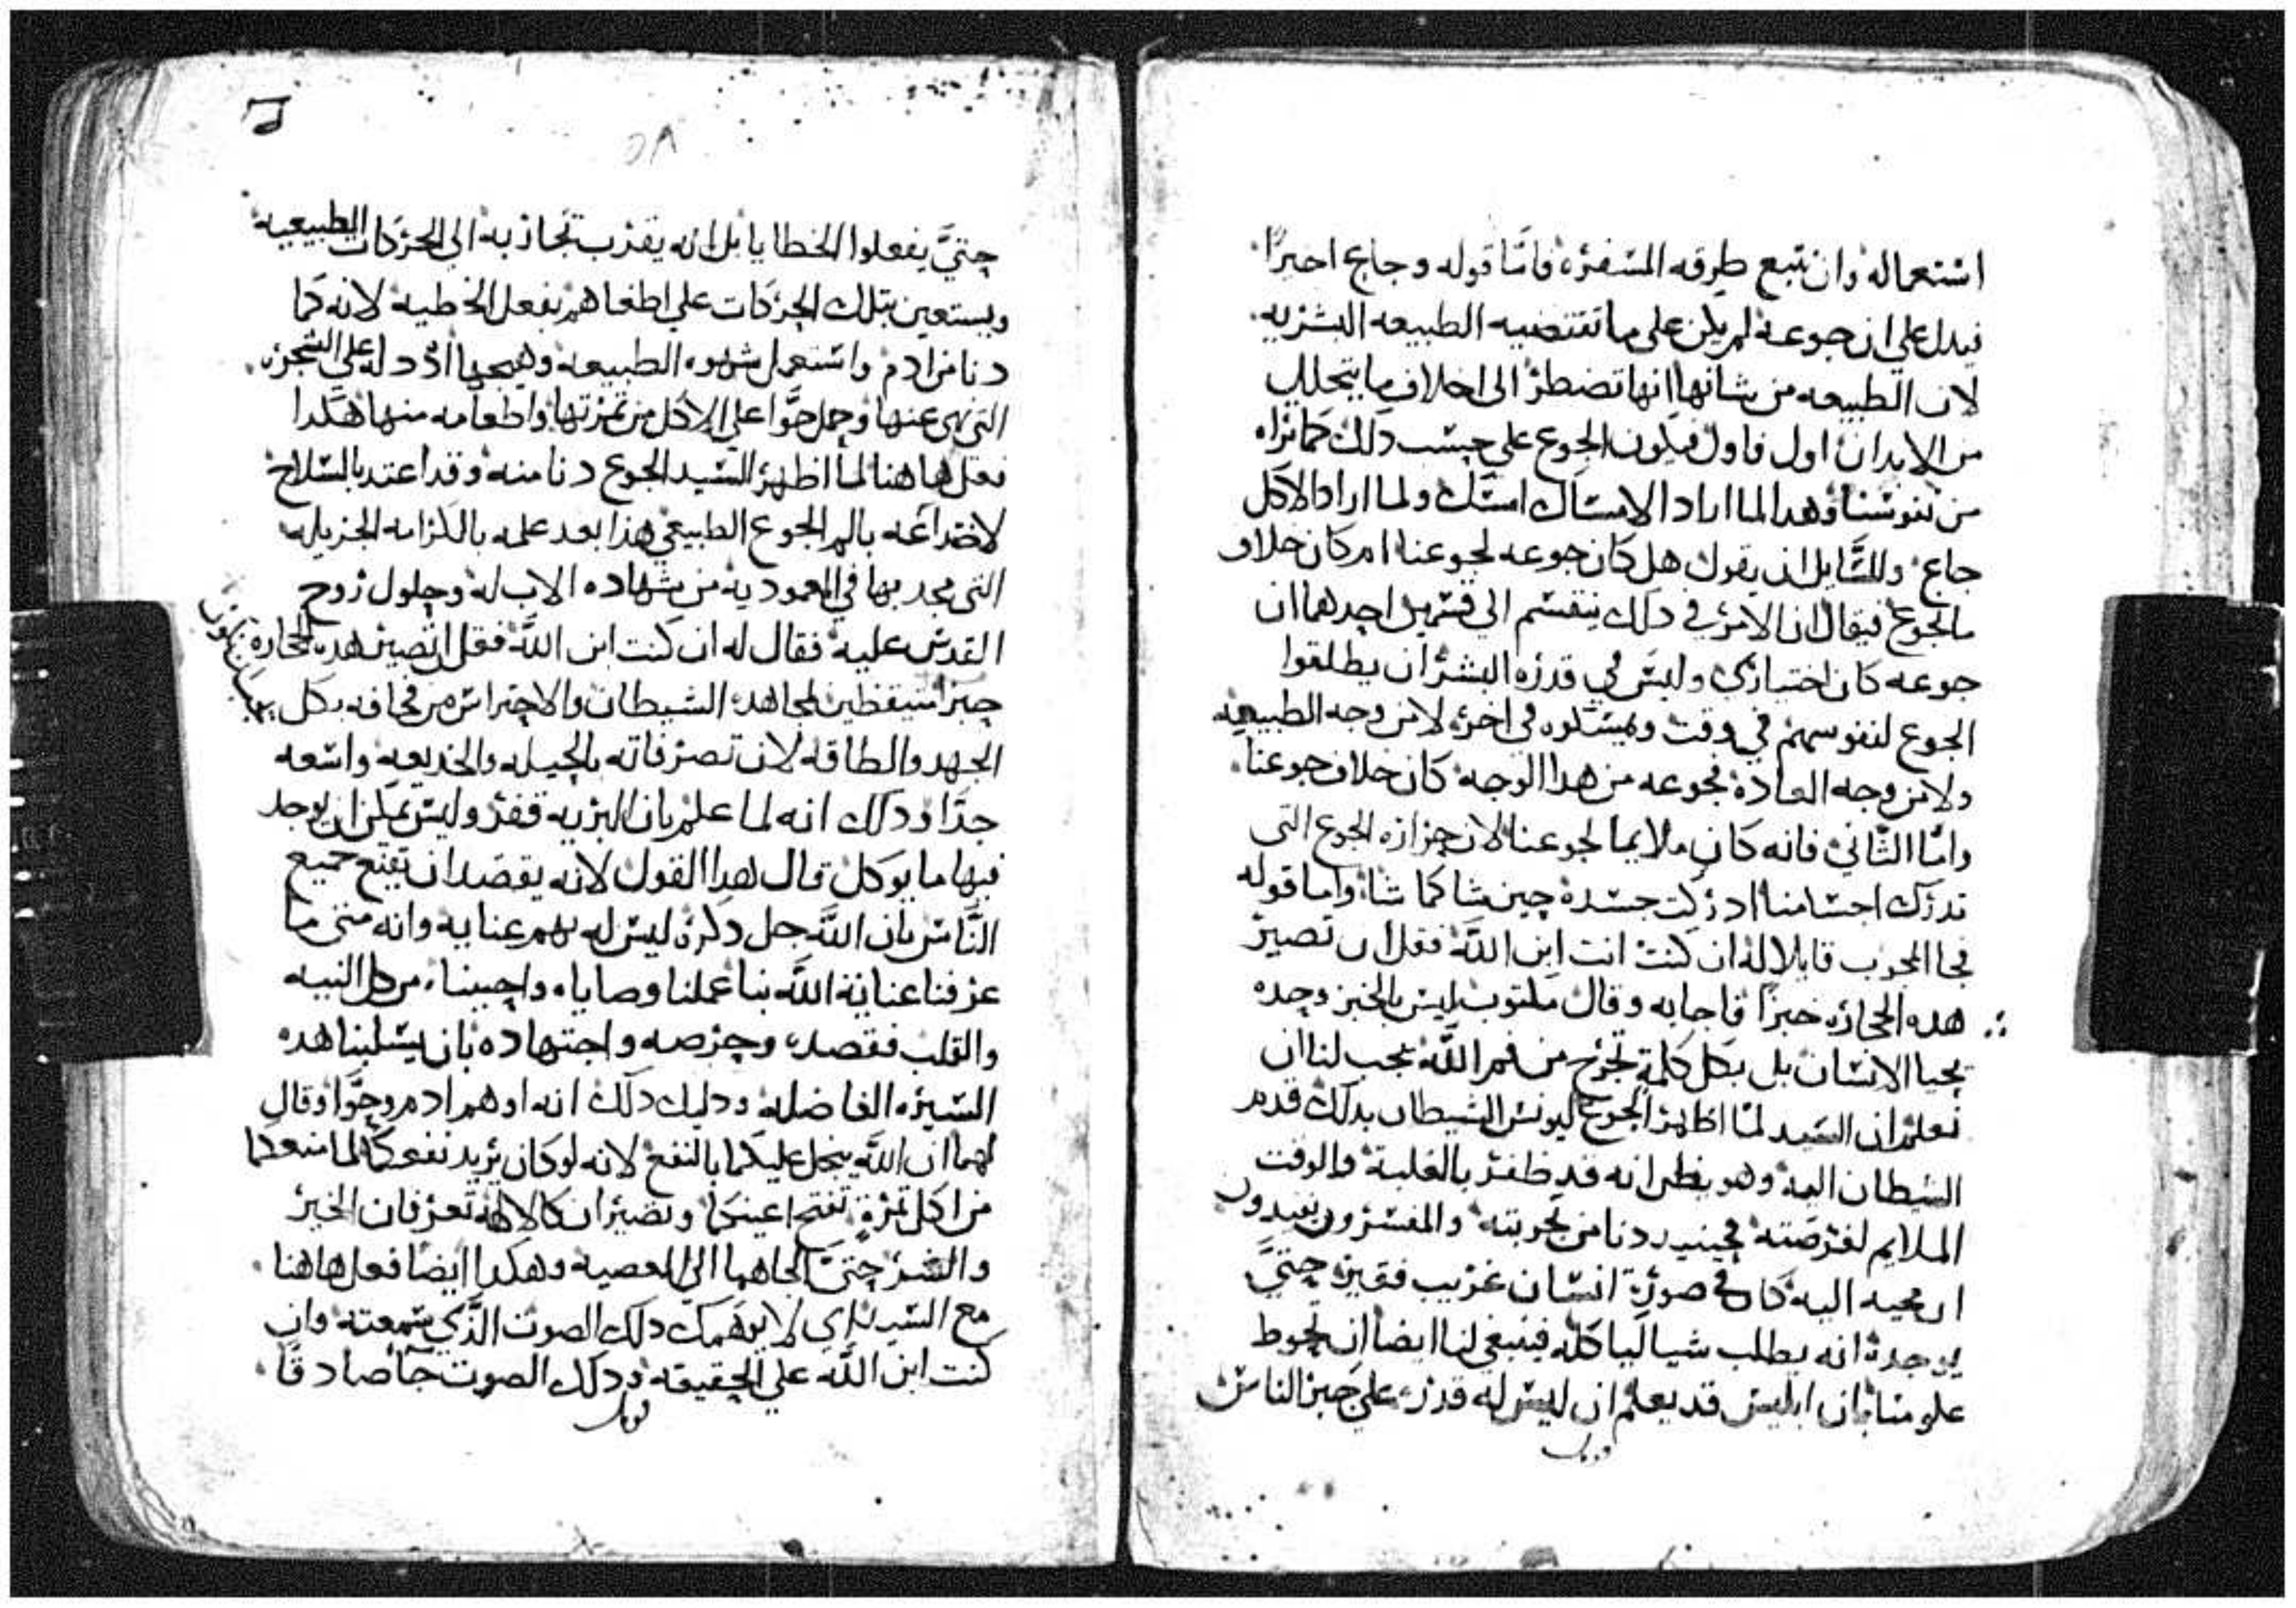 استعماله وان نتبع طرقه المسفره فاما قوله وجاع اخيرًا
فيدل علي ان جوعه لم يكن علي ما تقتضيه الطبيعه البشريه
لان الطبيعه من شانها انها تضطر الى اخلاف ما يتحلل
من الابدان اول فاول فيكون الجوع علي حسب دلك كما نراه
من نفوسنا وهدا لما اراد الامساك امسك ولما اراد الاكل
جاع وللسَّايل ان يقول هل كان جوعه لجوعنا ام كان خلاف
مالجوع فيقال ان الامر في دلك ينقسم الى قسمين احدهما ان
جوعه كان اختياري وليس في قدره البشر ان يطلقوا
الجوع لنفوسهم في وقت ويمسكوه في اخر لا من وجه الطبيعه
ولا من وجه العاده فجوعه من هدا الوجه كان خلاف جوعنا
وامّا الثَّاني فانه كان ملايما لجوعنا لان حراره الجوع التى
تدرك اجسامنا ادركت جسده حين شا كما شا واما قوله
فجا المجرب قايلا له ان كنت انت ابن اللَّه فقل ان تصير
هده الحجاره خبزًا فاجابه وقال مكتوب ليس بالخبز وحده
يحيا الانسان بل بكل كلمة تخرج من فم اللَّه يجب لنا ان
نعلم ان السيد لمّا اظهر الجوع ليونس الشيطان بدلك قدم
الشيطان اليه وهو يظن انه قد ظفر بالغلبة والوقت
الملايم لفرصته فحينيد دنا من تجربته والمفسرون يفيدون
ان مجيه اليه كان في صورة انسان غريب فقير حتيَّ
يوجده انه يطلب شيا لياكله فينبغي لنا ايضا ان نحوط
علومنا بان ابليس قد يعلم ان ليس له قدره علي جبر الناس
٥٨
حتيَّ يفعلوا الخطايا بل انه يقرب تجاذبه الى الحركات الطبيعيه
ويستعين بتلك الحركات علي اطغاهم بفعل الخطيه لانه كما
دنا من ادم واستعمل شهوه الطبيعه وهيجها اد دله علي الشجره
التي نهي عنها وحمل حوَّا علي الاكل من ثمرتها واطعامه منها هكدا
فعل هاهنا لما اظهر السيد الجوع دنا منه وقد اعتد بالسلاح
لاختداعه بالم الجوع الطبيعي هذا بعد علمه بالكرامه الجزيله
التى مجد بها في المعموديه من شهاده الاب له وحلول روح
القدس عليه فقال له ان كنت ابن اللَّه فقل ان تصير هده الحجاره
خبزًا متيقظين لمجاهده الشيطان والاحتراس من مخافه بكل يجب ان نكون
الجهد والطاقه لان تصرفاته بالحيله والخديعه واسعه
جدًّا ودلك انه لما علم بان البريه قفر وليس يمكن ان يوجد
فيها ما يوكل قال هدا القول لانه يقصد ان يقنع جميع
النَّاس بان اللَّه جل دكره ليس له بهم عنايه وانه متى ما
عرفنا عناية اللَّه بنا عملنا وصاياه واحببناه من كل النيه
والقلب فقصده وحرصه واجتهاده بان يسلبنا هده
السيره الفاضله ودليل دلك انه اوهم ادم وحوَّا وقال
لهما ان اللَّه يبخل عليكما بالنفع لانه لو كان يريد نفعكما لما منعكما
من اكل ثمرةٍ تفتح اعينكما وتصيران كالالهة تعرفان الخير
والشر حتيَّ الجاهما الى المعصيه وهكدا ايضًا فعل هاهنا
مع السيد اي لا يوهمك دلك الصوت الَّذي سمعته وان
كنت ابن اللَّه علي الحقيقه ودلك الصوت حقًا صادقًا